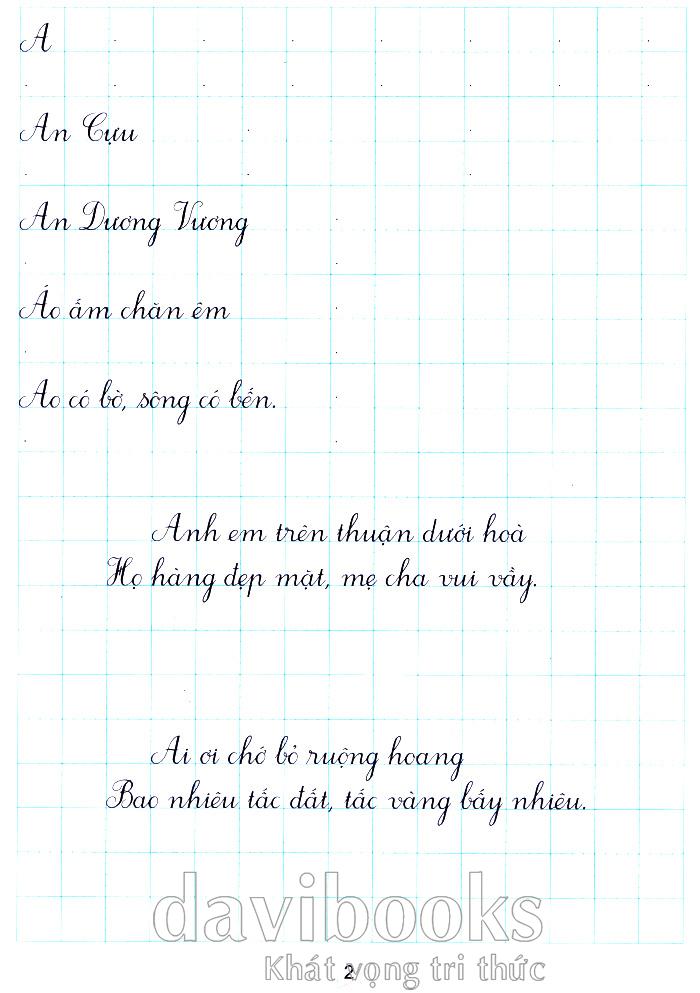 A
An Cựu
An Dương Vương
Áo ấm chăn êm
Ao có bờ, sông có bến.
Anh em trên thuận dưới hoà
Họ hàng đẹp mặt, mẹ cha vui vầy.
Ai ơi chớ bỏ ruộng hoang
Bao nhiêu tấc đất, tấc vàng bấy nhiêu.
davibooks
Khát vọng tri thức
2